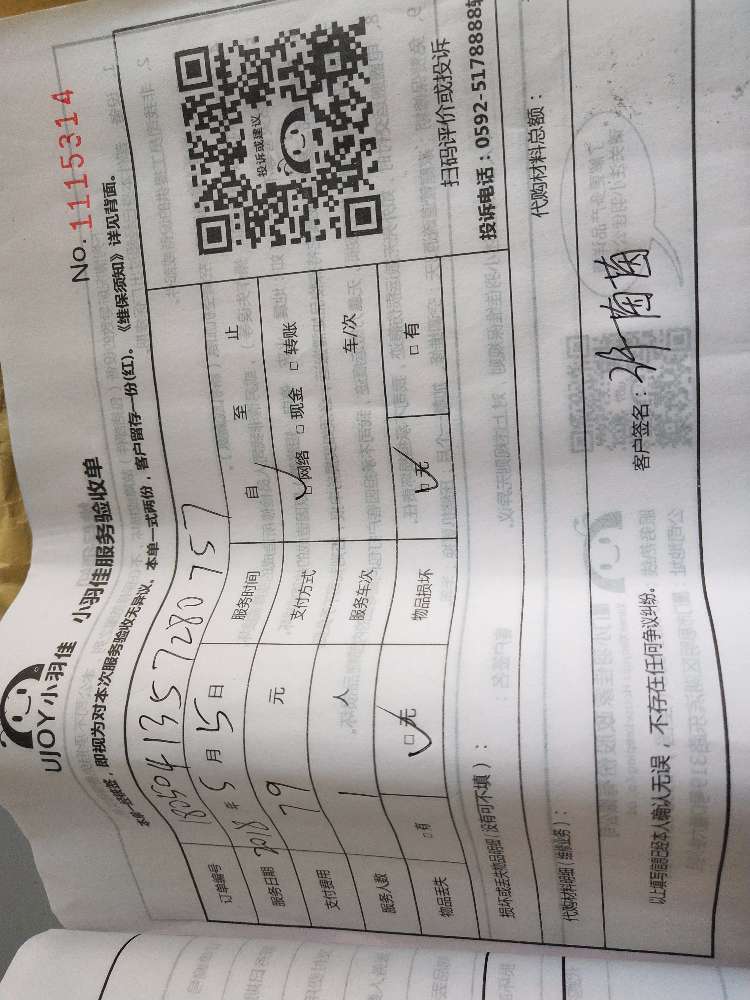 UJOY小羽佳 小羽佳服务验收单
No.1115314
即视为对本次服务验收无异议，本单一式两份，客户留存一份(红)。《维保须知》详见背面。
订单编号 180504135728 0757
服务日期 2018年5月5日 服务时间 自 至 止
支付费用 79 元 支付方式 ☑网络 □现金 □转账
服务人数 1 人 服务车次 车/次
物品丢失 □有 ☑无 物品损坏 ☑无 □有
投诉或建议
扫码评价或投诉
投诉电话：0592-5178888
损坏或丢失物品明细（没有可不填）：
代购材料明细（维修业务）： 代购材料总额：
以上填写信息经本人确认无误，不存在任何争议纠纷。 客户签名：